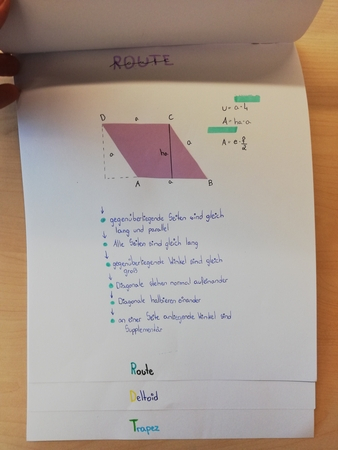 ROUTE
D a C
U= a·4
A= ha·a
A= e·f/2
a ha a
A a B
gegenüberliegende Seiten sind gleich
lang und parallel
Alle Seiten sind gleich lang
gegenüberliegende Winkel sind gleich
groß
Diagonale stehen normal aufeinander
Diagonale halbieren einander
an einer Seite anliegende Winkel sind
Supplementär
Route
Deltoid
Trapez